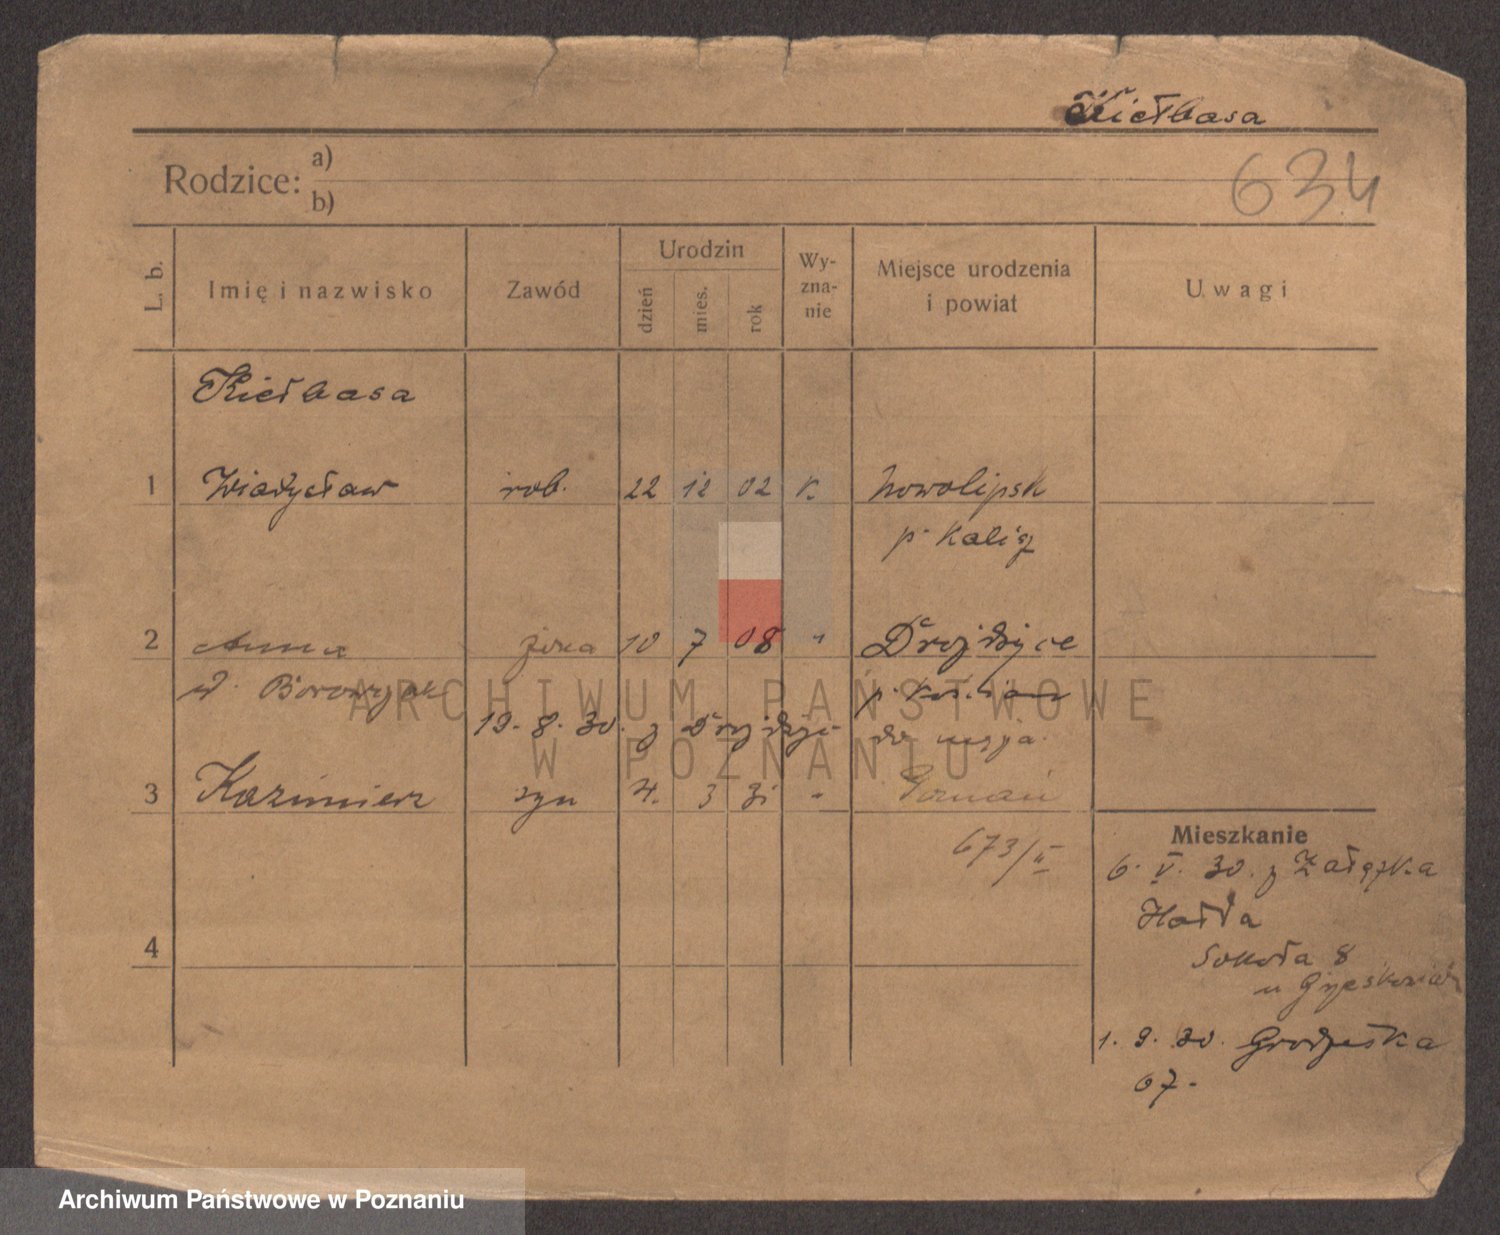 Kiełbasa
Rodzice: a)
b)
634
L. b.
Imię i nazwisko
Zawód
Urodzin
dzień
mies.
rok
Wy-
zna-
nie
Miejsce urodzenia
i powiat
Uwagi
Kiełbasa
1 Władysław rob. 22 12 02 k. Nowolipsk
p. Kalisz
2 Anna żona 10 7 08 " Drojdżyce
p.
19. 8. 30. z
3 Kazimierz syn 4. 3 31 " Poznań
673/II
Mieszkanie
6. V. 30. z Załązka
4
Sokoła 8
u
1. 9. 30. Grodziska
67.
ARCHIWUM PAŃSTWOWE
W POZNANIU
Archiwum Państwowe w Poznaniu